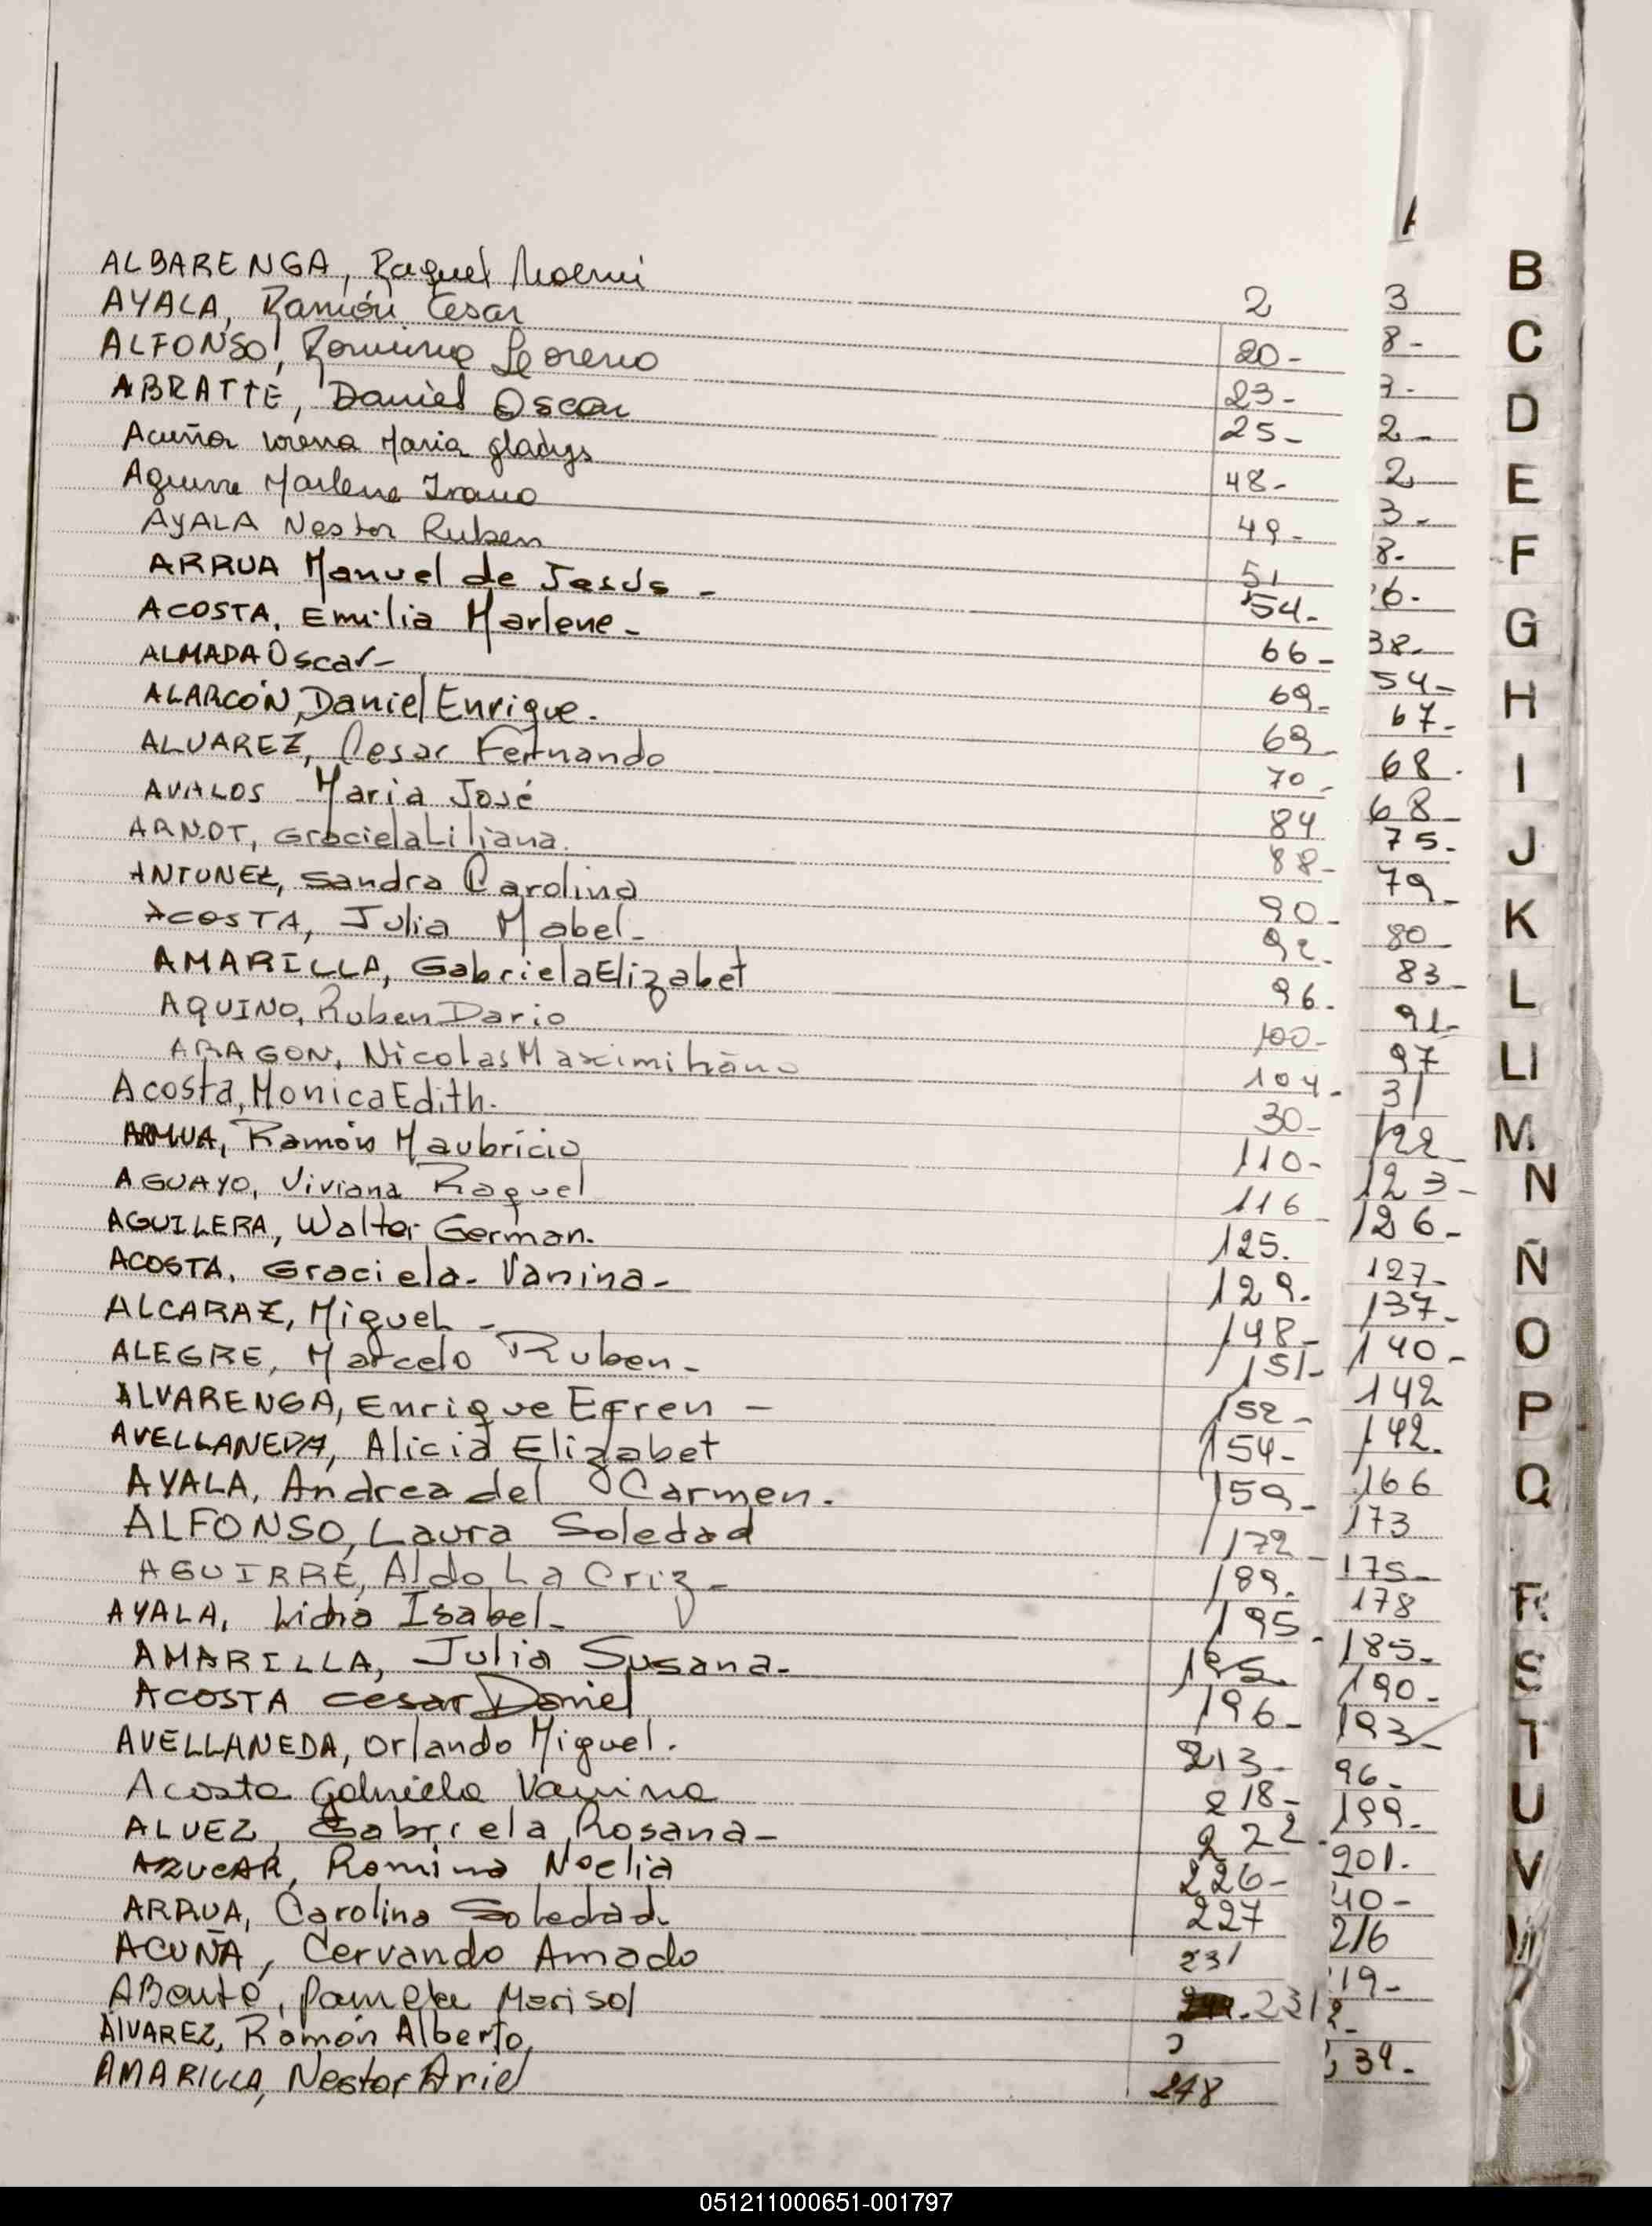 ALBARENGA, Raquel Noemi 2
AYALA, Ramón Cesar 20-
ALFONSO, Romina Lorena 23-
ABRATTE, Daniel Oscar 25-
Acuña Lorena Maria gladys 48-
Aguirre Marlene 49-
AYALA Nestor Ruben 51
ARRUA Manuel de Jesús - 54-
ACOSTA, Emilia Marlene- 66-
ALMADA Oscar- 69-
ALARCÓN, Daniel Enrique. 69-
ALVAREZ, Cesar Fernando 70-
AVALOS Maria José 84
ARNOT, Graciela Liliana. 88-
ANTUNEZ, Sandra Carolina 90-
ACOSTA, Julia Mabel- 92-
AMARILLA, Gabriela Elizabet 96-
AQUINO, Ruben Dario 100-
ARAGON, Nicolas Maximiliano 104-
Acosta, Monica Edith. 30-
Ramón Maubricio 110-
AGUAYO, Viviana Raquel 116-
AGUILERA, Walter German. 125.
ACOSTA, Graciela- Vanina- 129.
ALCARAZ, Miguel - 148-
ALEGRE, Marcelo Ruben- 151-
ALVARENGA, Enrique Efren - 152-
AVELLANEDA, Alicia Elizabet 154-
AYALA, Andrea del Carmen. 159-
ALFONSO, Laura Soledad 172-
AGUIRRE, Aldo La Criz- 189.
AYALA, Lidia Isabel- 195-
AMARILLA, Julia Susana- 195
ACOSTA Cesar Daniel 196-
AVELLANEDA, Orlando Miguel. 213-
Acosta Gabriela Vanina 218-
ALVEZ, Gabriela Rosana- 222-
AZUCAR, Romina Noelia 226-
ARRUA, Carolina Soledad. 227
ACUÑA, Cervando Amado 231
ABente, Pamela Marisol 231
AlVAREZ, Ramón Alberto,
AMARILLA, Nestor Ariel 248
3
8-
7-
2-
2
3-
8-
6-
38-
54-
67-
68-
68-
75-
79-
80-
83-
91-
97
31
122-
123-
126-
127-
137-
140-
142
142.
166
173
175-
178
185-
190-
193-
96-
199-
201-
40-
216
19-
2-
34-
B
C
D
E
F
G
H
I
J
K
L
Ll
M
N
Ñ
O
P
Q
R
S
T
U
V
051211000651-001797